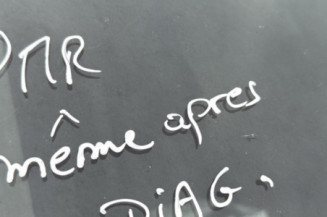 DMR
même après
DiAG.